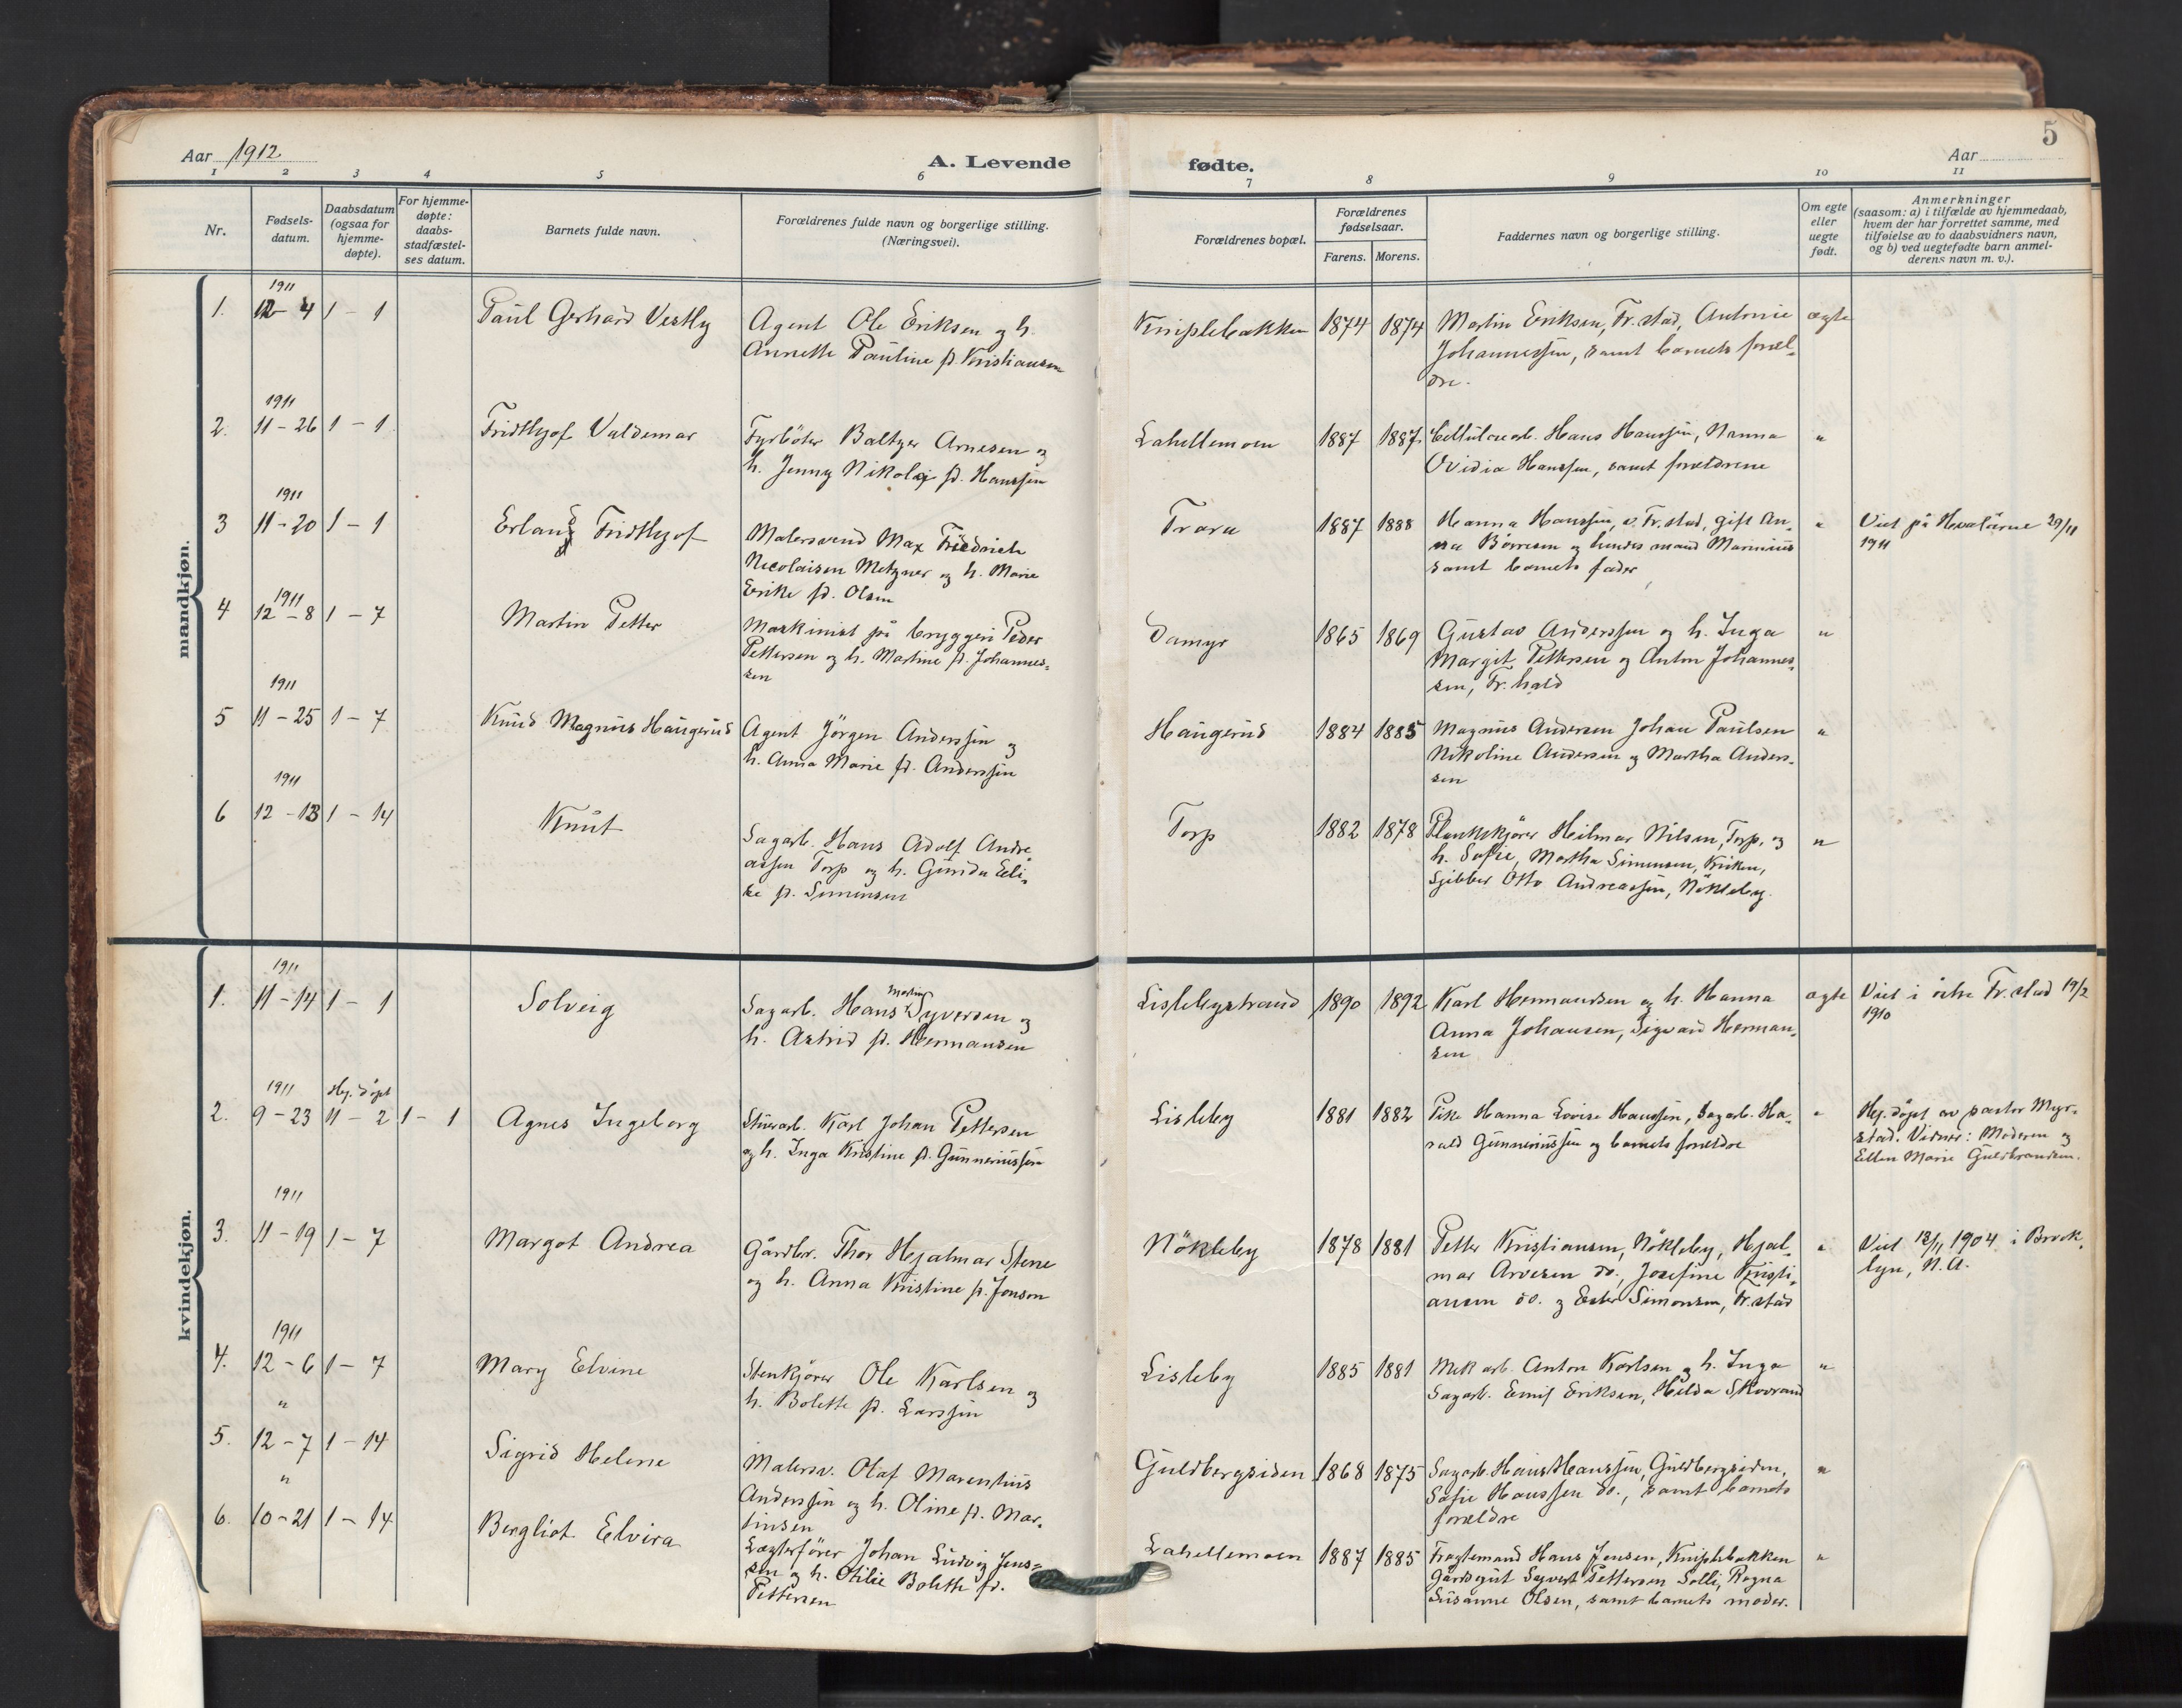 Aar 1912
A. Levende
fødte.
Aar
5
1 2 3 4 5 6 7 8 9 10 11
Nr.
Fødsels-
datum.
Daabsdatum
(ogsaa for
hjemme-
døpte).
For hjemme-
døpte:
daabs-
stadfæstel-
ses datum.
Barnets fulde navn.
Forældrenes fulde navn og borgerlige stilling.
(Næringsvei).
Forældrenes bopæl.
Forældrenes
fødselsaar.
Farens. Morens.
Faddernes navn og borgerlige stilling.
Om egte
eller
uegte
født.
Anmerkninger
(saasom: a) i tilfælde av hjemmedaab,
hvem der har forrettet samme, med
tilføielse av to daabsvidners navn,
og b) ved uegtefødte barn anmel-
derens navn m. v.).
mandkjøn.
1911
1. 12-4 1-1 Paul Gerhard Vestly
Agent Ole Eriksen og h.
Annette Pauline f. Kristiansen
Kniplebakken 1874 1874
Martin Eriksen, Fr.stad, Antonie
Johannessen, samt barnets foræl-
dre.
ægte
1911
2. 11-26 1-1 Fridthjof Valdemar
Fyrböter Baltzer Arnesen og
h. Jenny Nikolai fd. Hanssen
Lahellemoen 1887 1887
Cellulosearb. Hans Hanssen, Nanna
Ovidia Hanssen, samt forældrene
"
1911
3 11-20 1-1 Erland Fridthjof
Malersvend Max Friedrich
Nicolaisen Metzner og h. Marie
Erike fd. Olsen
Trara 1887 1888
Hanna Hanssen, v. Fr.stad, gift An-
na Börresen og hendes mand Marinius
samt barnets fader
"
Viet på Hvalöerne 29/11
1911
1911
4 12-8 1-7 Martin Petter
Maskinist på bryggeri Peder
Pettersen og h. Martine f. Johannes-
sen
Damyr 1865 1869
Gustav Anderssen og h. Inga
Margit Pettersen og Anton Johannes-
sen, Fr.hald
"
1911
5 11-25 1-7 Knud Magnus Haugerud
Agent Jörgen Anderssen og
h. Anna Marie fd. Anderssen
Haugerud 1884 1885
Magnus Andersen Johan Paulsen
Nikoline Andersen og Martha Anders-
sen
"
1911
6 12-13 1-14 Knut
Sagarb. Hans Adolf Andre
assen Torp og h. Gunda Eli-
se f. Simensen
Torp 1882 1878
Plankekjörer Hilmar Nilsen, Torp, og
h. Sofie, Martha Simensen, Kriken,
Sjöbber Otto Andreassen, Nökleby.
"
kvindekjøn.
1911
1. 11-14 1-1 Solveig
Sagarb. Hans Martin Syversen og
h. Astrid f. Hermansen
Lislebystrand 1890 1892
Karl Hermandsen og h. Hanna
Anna Johansen, Sigvard Herman-
sen
ægte
Viet i östre Fr.stad 19/2
1910
1911 Hj. döpt
2. 9-23 11-2 1-1 Agnes Ingeborg
Stuerarb. Karl Johan Pettersen
og h. Inga Kristine fd. Gunneriussen
Lisleby 1881 1882
Pike Hanna Lovise Hanssen, Sagarb. Ha-
rald Gunneriussen og barnets forældre
"
Hj. döpt av pastor Myr-
stad. Vidner: Moderen og
Ellen Marie Guldbrandsen.
1911
3. 11-19 1-7 Margot Andrea
Gårdbr. Thor Hjalmar Stene
og h. Anna Kristine f. Jonson
Nökleby 1878 1881
Petter Kristiansen, Nökleby, Hjal-
mar Arvesen do., Josefine Kristi-
ansen do. og Ester Simonsen, Fr.stad
"
Viet 18/11 1904 i Brook-
lyn, N.A.
1911
4. 12-6 1-7 Mary Elvine
Stenkjörer Ole Karlsen og
h. Bolette fd. Larssen
Lisleby 1885 1881
Mek arb. Anton Karlsen og h. Inga
Sagarb. Emil Eriksen, Hilda Skovrand
"
"
5. 12-7 1-14 Sigrid Helene
Malersv. Olaf Marentius
Anderssen og h. Oline f. Mar-
tinsen
Guldbergsiden 1868 1875
Sagarb. Hans Hanssen, Guldbergsiden,
Sofie Hanssen do., samt barnets
forældre
"
"
6. 10-21 1-14 Bergliot Elvira
Lægterförer Johan Ludvig Jens-
sen og h. Otilie Bolette fd.
Pettersen
Lahellemoen 1887 1885
Fragtemand Hans Jensen, Kniplebakken
Gårdsgut Syvert Pettersen Solli, Ragna
Susanne Olsen, samt barnets moder.
"